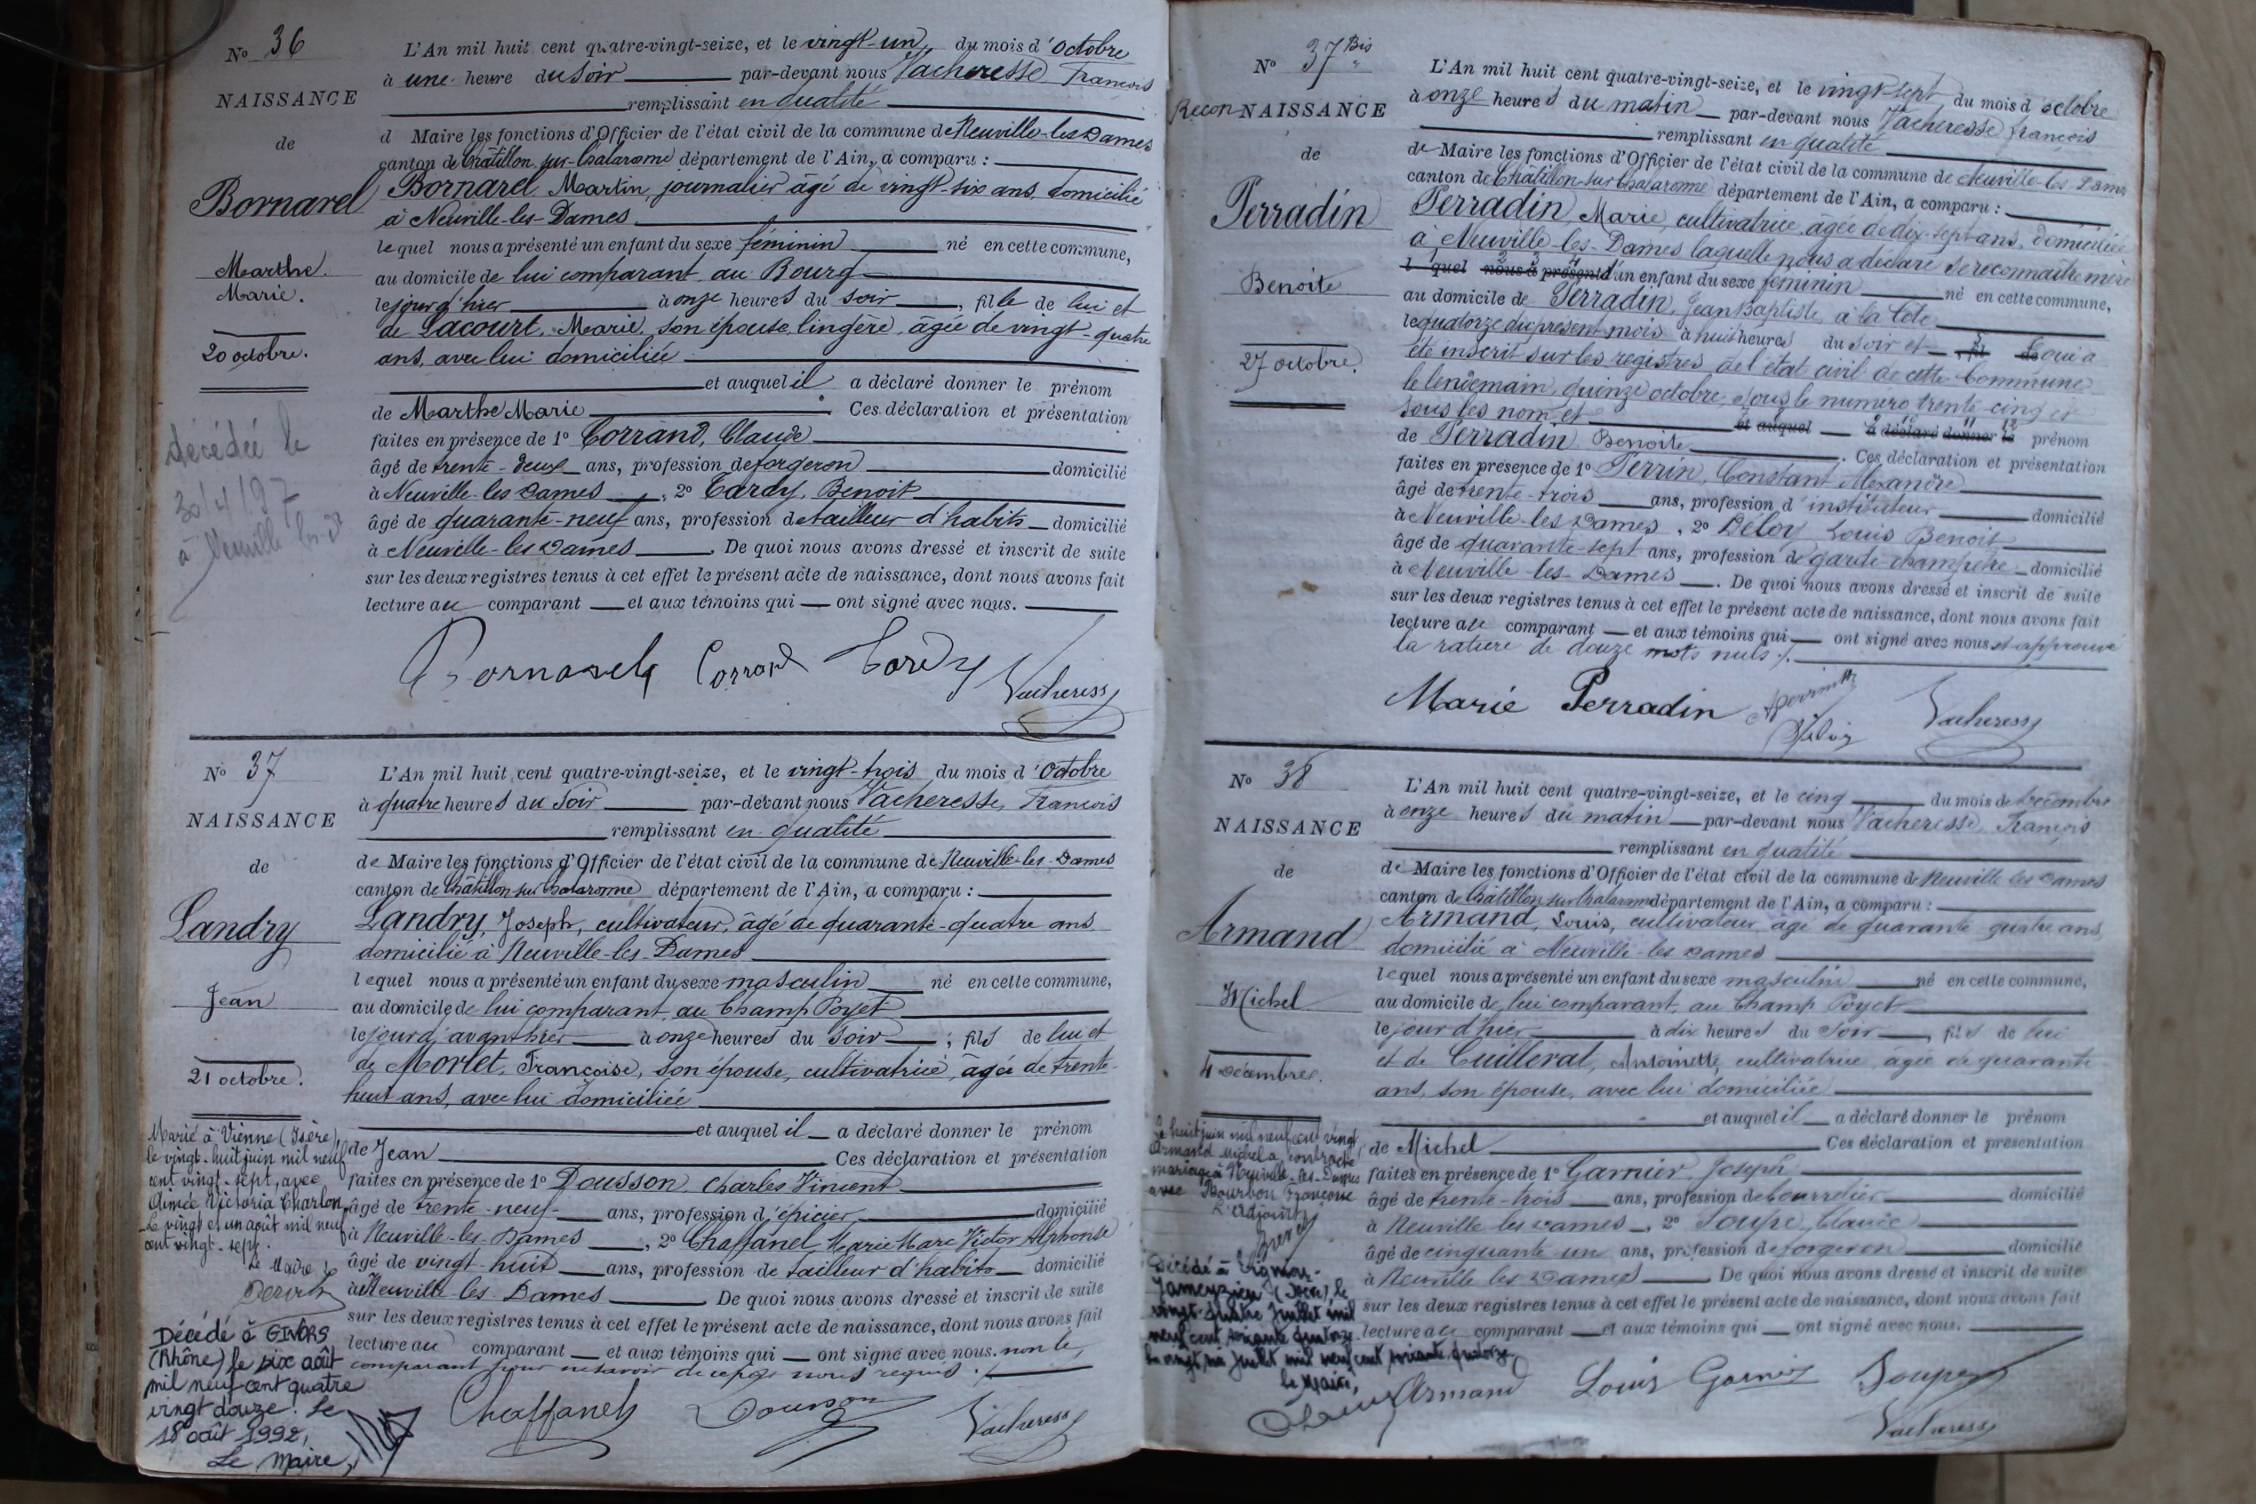 N° 36
NAISSANCE
de
Bornarel
Marthe
Marie.
20 octobre.
décédée le
30/4/97
à Neuville les D
L'An mil huit cent quatre-vingt-seize, et le vingt-un du mois d'octobre
à une heure du soir par-devant nous Vacheresse François
remplissant en qualité
d Maire les fonctions d'Officier de l'état civil de la commune de Neuville-les-Dames
canton de Châtillon sur-Chalaronne département de l'Ain, a comparu :
Bornarel Martin, journalier âgé de vingt-six ans, domicilié
à Neuville-les-Dames
lequel nous a présenté un enfant du sexe féminin né en cette commune,
au domicile de lui comparant, au Bourg
le jour d'hier à onze heures du soir, fille de lui et
de Lacourt, Marie, son épouse, lingère, âgée de vingt-quatre
ans, avec lui domiciliée
et auquel il a déclaré donner le prénom
de Marthe Marie Ces déclaration et présentation
faites en présence de 1° Corrand, Claude
âgé de trente-deux ans, profession de forgeron domicilié
à Neuville-les-Dames, 2° Tardy, Benoit
âgé de quarante-neuf ans, profession de tailleur d'habits domicilié
à Neuville-les-Dames. De quoi nous avons dressé et inscrit de suite
sur les deux registres tenus à cet effet le présent acte de naissance, dont nous avons fait
lecture au comparant et aux témoins qui ont signé avec nous.
Bornarel Corrand Tardy Vacheresse
N° 37
NAISSANCE
de
Landry
Jean
21 octobre.
Marié à Vienne (Isère)
le vingt-huit juin mil neuf
cent vingt-sept, avec
Aimée Victoria Charlon
Le vingt et un août mil neuf
cent vingt-sept.
Le Maire
Décédé à GIVORS
(Rhône) le six août
mil neuf cent quatre
vingt douze. Le
18 août 1992,
Le Maire,
L'An mil huit cent quatre-vingt-seize, et le vingt-trois du mois d'octobre
à quatre heures du soir par-devant nous Vacheresse, François
remplissant en qualité
de Maire les fonctions d'Officier de l'état civil de la commune de Neuville-les-Dames
canton de Châtillon sur Chalaronne département de l'Ain, a comparu :
Landry, Joseph, cultivateur, âgé de quarante-quatre ans
domicilié à Neuville-les-Dames
lequel nous a présenté un enfant du sexe masculin né en cette commune,
au domicile de lui comparant au Champ Poyet
le jour d'avant hier à onze heures du soir ; fils de lui et
de Morlet, Françoise, son épouse, cultivatrice, âgée de trente-
huit ans, avec lui domiciliée
et auquel il a déclaré donner le prénom
de Jean Ces déclaration et présentation
faites en présence de 1° Dousson, Charles Vincent
âgé de trente-neuf ans, profession d'épicier domicilié
à Neuville-les-Dames, 2° Chaffanel Marie Marc Victor Alphonse
âgé de vingt-huit ans, profession de tailleur d'habits domicilié
à Neuville-les-Dames De quoi nous avons dressé et inscrit de suite
sur les deux registres tenus à cet effet le présent acte de naissance, dont nous avons fait
lecture au comparant et aux témoins qui ont signé avec nous. non le
comparant pour ne savoir de ce par nous requis ./.
Chaffanel Dousson Vacheresse
N° 37 Bis
Recon NAISSANCE
de
Perradin
Benoite
27 octobre.
L'An mil huit cent quatre-vingt-seize, et le vingt-sept du mois d'octobre
à onze heures du matin par-devant nous Vacheresse François
remplissant en qualité
de Maire les fonctions d'Officier de l'état civil de la commune de Neuville-les-Dames
canton de Châtillon-sur-Chalaronne département de l'Ain, a comparu :
Perradin, Marie, cultivatrice, âgée de dix-sept ans, domiciliée
à Neuville-les-Dames laquelle nous a déclaré se reconnaître mère
l quel nous a présenté d'un enfant du sexe féminin né en cette commune,
au domicile de Perradin, Jean Baptiste, à la
le quatorze du présent mois à huit heures du soir et fil de qui a
été inscrit sur les registres de l'état civil de cette Commune
le lendemain, quinze octobre, sous le numéro trente-cinq et
sous les nom et et auquel a déclaré donner le prénom
de Perradin Benoite. Ces déclaration et présentation
faites en présence de 1° Perrin, Constant Alexandre
âgé de trente-trois ans, profession d'instituteur domicilié
à Neuville-les-Dames, 2° Déloy, Louis Benoit
âgé de quarante-sept ans, profession de garde-champêtre domicilié
à Neuville-les-Dames. De quoi nous avons dressé et inscrit de suite
sur les deux registres tenus à cet effet le présent acte de naissance, dont nous avons fait
lecture au comparant et aux témoins qui ont signé avec nous et approuvé
la rature de douze mots nuls ./.
Marie Perradin Perrin Déloy Vacheresse
N° 38
NAISSANCE
de
Armand
Michel
4 décembre.
Le huit juin mil neuf cent vingt
Armand Michel a contracté
mariage à Neuville-les-Dames
avec Bourbon Françoise
L'Adjoint
Décédé à
Jameyzieu (Isère) le
vingt-quatre Juillet mil
neuf cent soixante quatorze
Le vingt Juillet mil neuf cent soixante quatorze,
le Maire,
L'An mil huit cent quatre-vingt-seize, et le cinq du mois de décembre
à onze heures du matin par-devant nous Vacheresse, François
remplissant en qualité
de Maire les fonctions d'Officier de l'état civil de la commune de Neuville les Dames
canton de Châtillon sur Chalaronne département de l'Ain, a comparu :
Armand, Louis, cultivateur, âgé de quarante quatre ans
domicilié à Neuville-les-Dames
lequel nous a présenté un enfant du sexe masculin né en cette commune,
au domicile d lui comparant, au Champ Poyet
le jour d'hier à dix heures du soir, fils de lui
et de Cuillerat, Antoinette, cultivatrice, âgée de quarante
ans, son épouse, avec lui domiciliée
et auquel il a déclaré donner le prénom
de Michel Ces déclaration et présentation
faites en présence de 1° Garnier, Joseph
âgé de trente-trois ans, profession de bourrelier domicilié
à Neuville les Dames, 2° Soupe, Claude
âgé de cinquante un ans, profession de forgeron domicilié
à Neuville les Dames De quoi nous avons dressé et inscrit de suite
sur les deux registres tenus à cet effet le présent acte de naissance, dont nous avons fait
lecture au comparant et aux témoins qui ont signé avec nous.
Armand Louis Garnier Soupe
Vacheresse